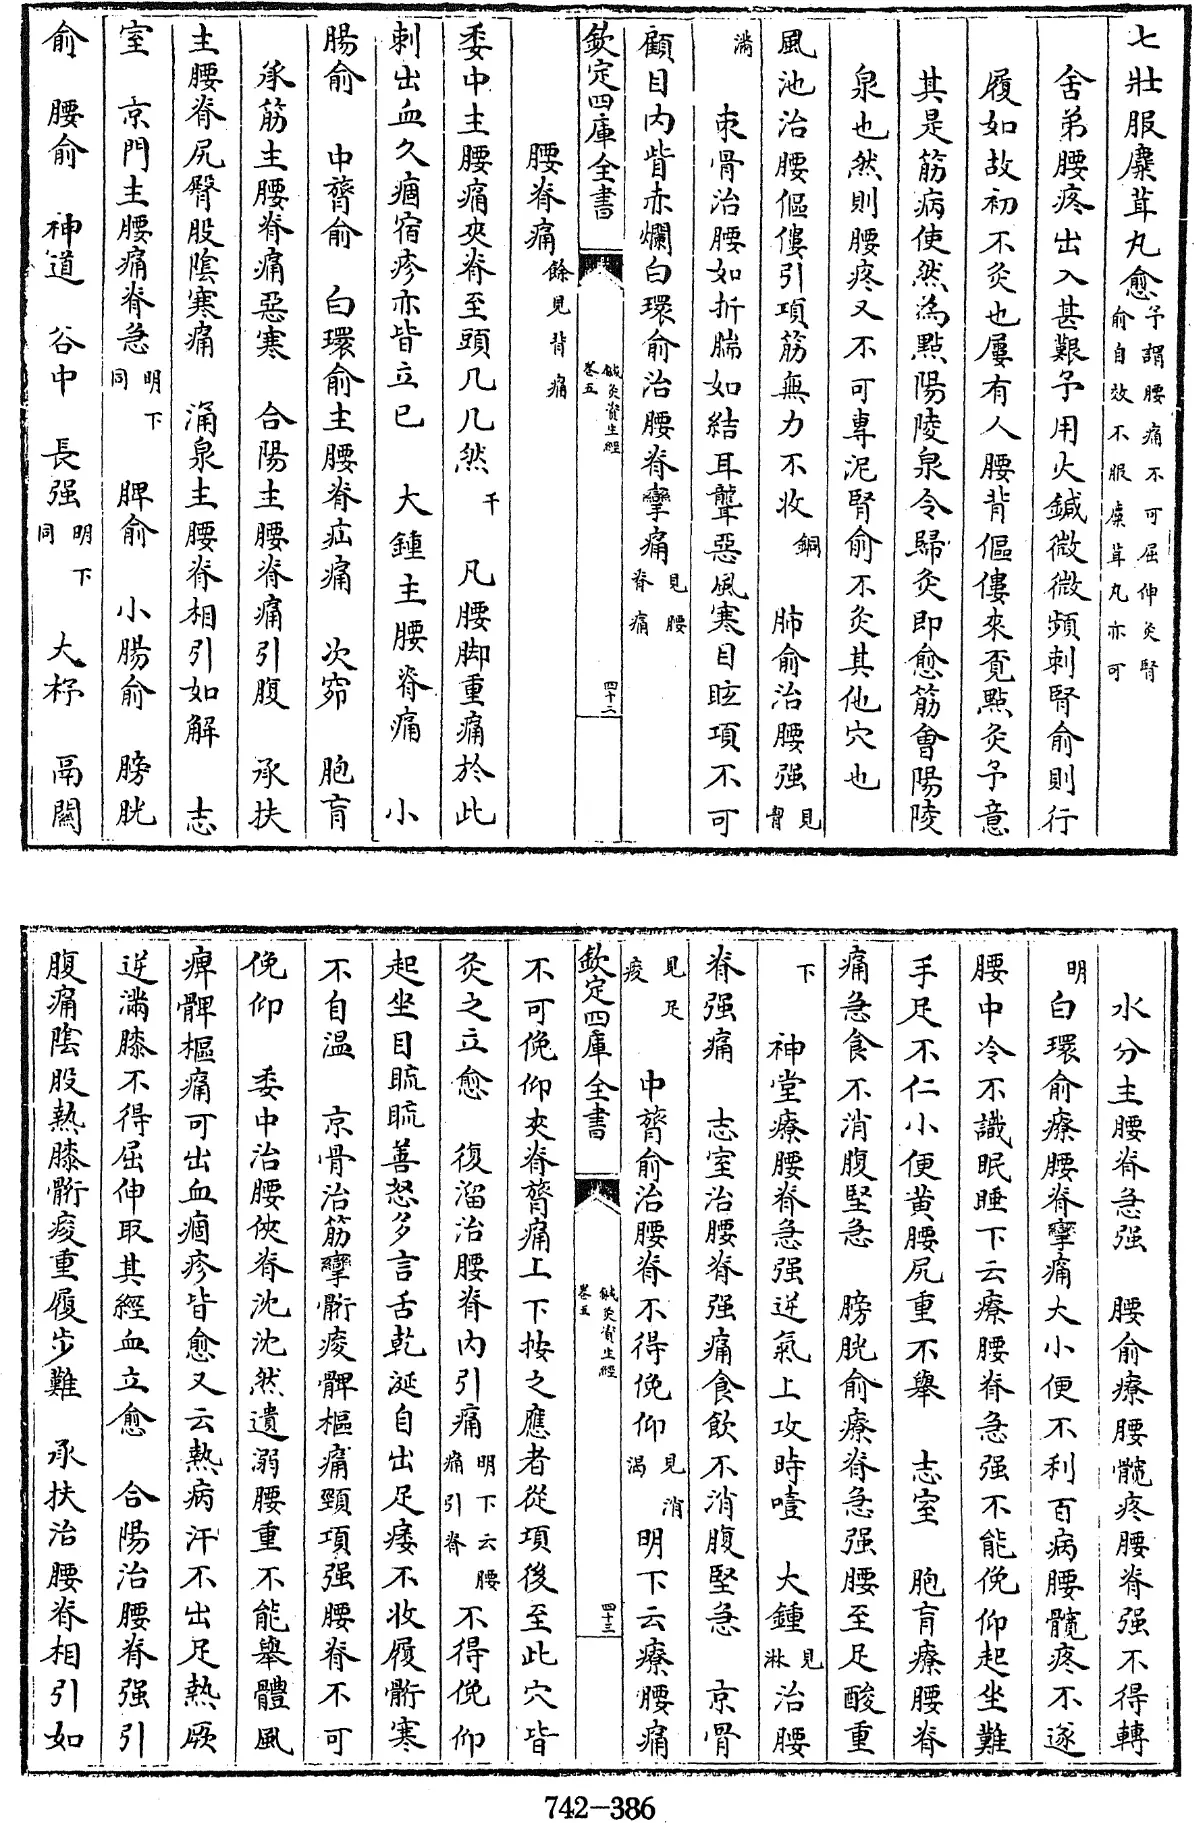 七壯服麋茸丸愈予謂腰痛不可屈伸灸腎俞自效不服麋茸丸亦可
舍弟腰疼出入甚艱予用火鍼微微頻刺腎俞則行
履如故初不灸也屢有人腰背傴僂來覓點灸予意
其是筋病使然為點陽陵泉令歸灸即愈筋會陽陵
泉也然則腰疼又不可專泥腎俞不灸其他穴也
風池治腰傴僂引項筋無力不收銅 肺俞治腰强見胷
滿 束骨治腰如折腨如結耳聾惡風寒目眩項不可
顧目內眥赤爛白環俞治腰脊攣痛見腰脊痛
欽定四庫全書 鍼灸資生經 卷五 四十二
腰脊痛餘見背痛
委中主腰痛夾脊至頭几几然千 凡腰脚重痛於此
刺出血久痼宿疹亦皆立已 大鍾主腰脊痛 小
腸俞 中膂俞 白環俞主腰脊疝痛 次窌 胞肓
承筋主腰脊痛惡寒 合陽主腰脊痛引腹 承扶
主腰脊尻臀股陰寒痛 涌泉主腰脊相引如解 志
室 京門主腰痛脊急明下同 脾俞 小腸俞 膀胱
俞 腰俞 神道 谷中 長强明下同 大杼 鬲關
水分主腰脊急强 腰俞療腰髖疼腰脊强不得轉
明 白環俞療腰脊攣痛大小便不利百病腰髖疼不遂
腰中冷不識眠睡下云療腰脊急强不能俛仰起坐難
手足不仁小便黄腰尻重不舉 志室 胞肓療腰脊
痛急食不消腹堅急 膀胱俞療脊急强腰至足酸重
下 神堂療腰脊急强逆氣上攻時噎 大鍾見淋治腰
脊强痛 志室治腰脊强痛食飲不消腹堅急 京骨
見足痠 中膂俞治腰脊不得俛仰見消渴 明下云療腰痛
欽定四庫全書 鍼灸資生經 卷五 四十三
不可俛仰夾脊膂痛上下按之應者從項後至此穴皆
灸之立愈 復溜治腰脊內引痛明下云腰痛引脊不得俛仰
起坐目䀮䀮善怒多言舌乾涎自出足痿不收履䯒寒
不自溫 京骨治筋攣䯒痠髀樞痛頸項强腰脊不可
俛仰 委中治腰俠脊沈沈然遺溺腰重不能舉體風
痺髀樞痛可出血痼疹皆愈又云熱病汗不出足熱厥
逆滿膝不得屈伸取其經血立愈 合陽治腰脊强引
腹痛陰股熱膝䯒痠重履步難 承扶治腰脊相引如
742-386